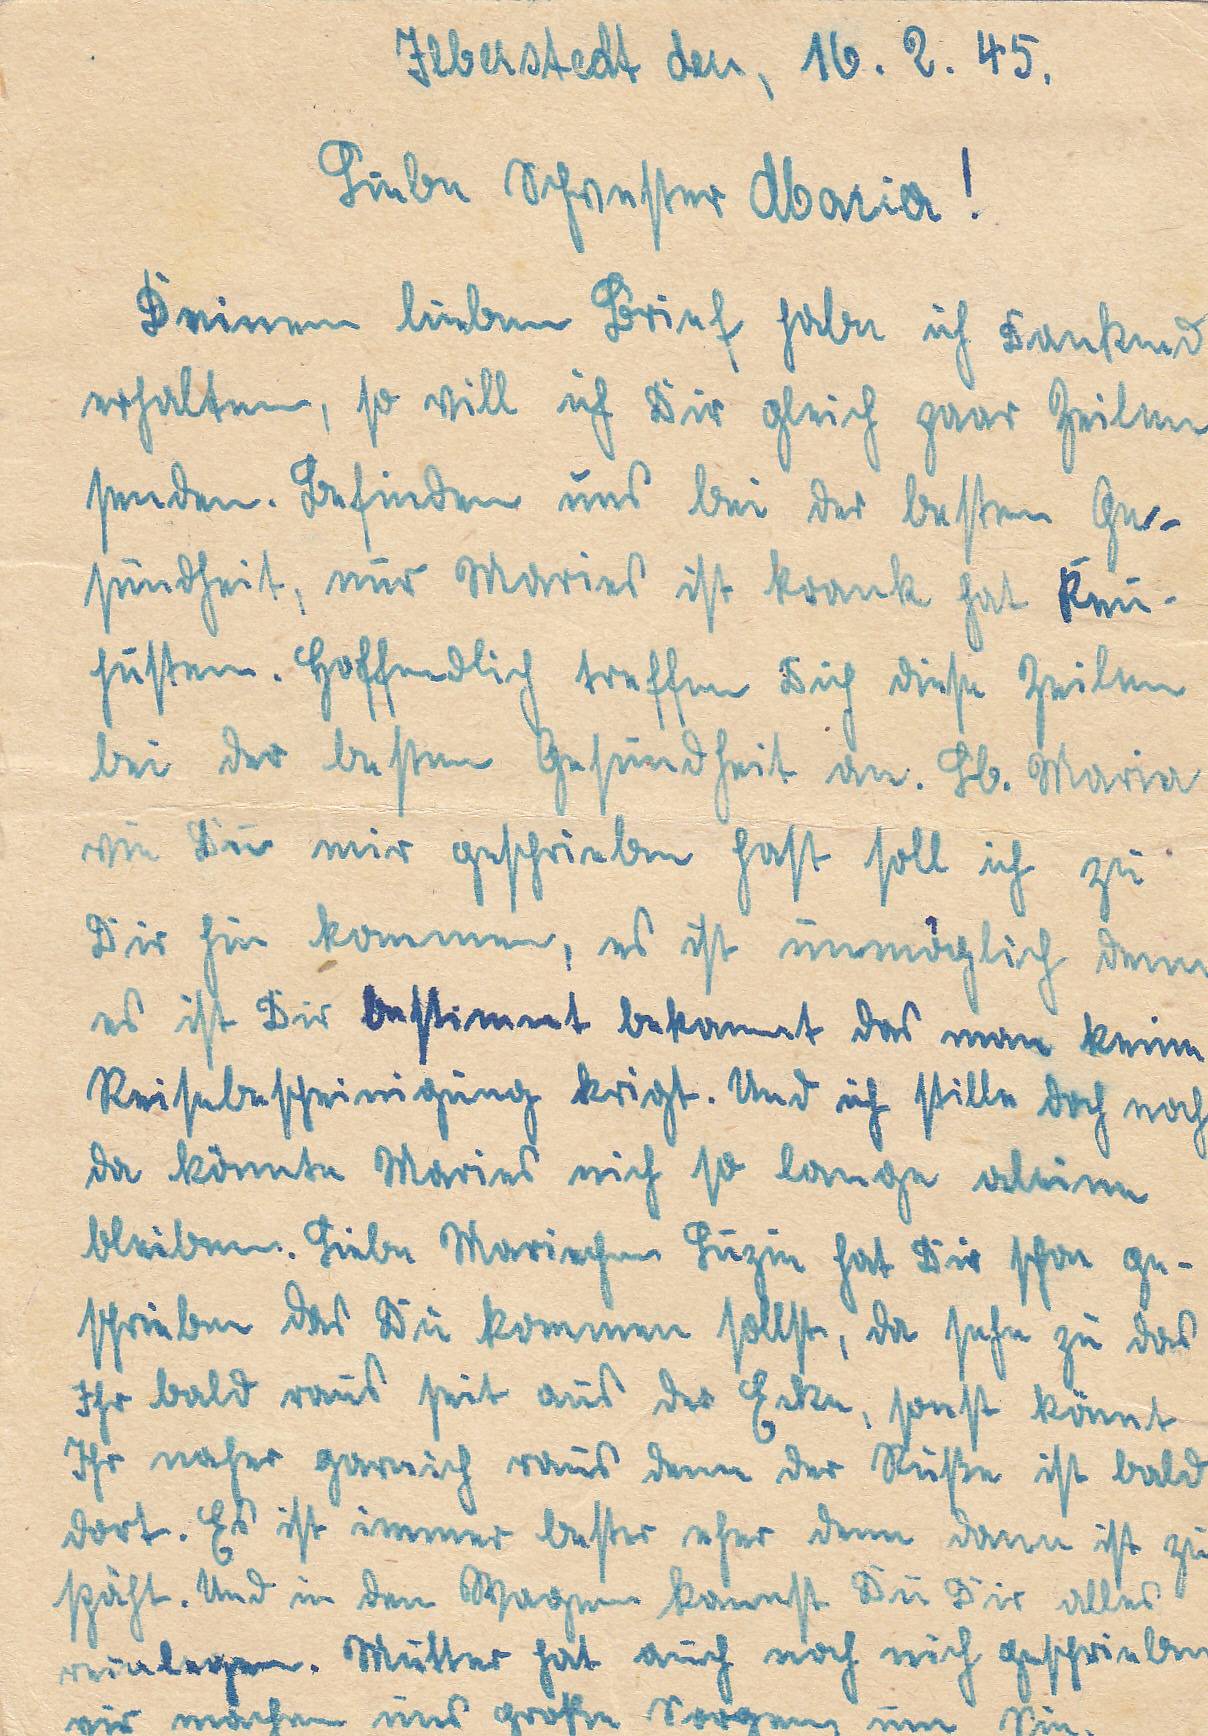 Ilberstedt den, 16. 2. 45.
Liebe Schwester Maria!
Deinen lieben Brief habe ich Dankend
erhalten, so will ich Dir gleich paar Zeilen
senden. Befinden uns bei der besten Ge-
sundheit, nur Maries ist krank hat Keu-
husten. Hoffendlich treffen Dich diese Zeilen
bei der besten Gesundheit an. Lb. Maria
wie Du mir geschrieben hast soll ich zu
Dir hin kommen, es ist unmöglich denn
es ist Dir bestimmt bekannt das man keine
Reisebescheinigung krigt. Und ich stille doch noch
da könnte Maries nich so lange aleine
bleiben. Liebe Mariechen Luzie hat Dir schon ge-
schrieben das Du kommen sollst, da sehe zu das
Ihr bald raus seit aus der Ecke, sonst könnt
Ihr naher garnich raus denn der Ruße ist bald
dort. Es ist immer bester eher denn dann ist zu
späht. Und in den Wagen kannst Du Dir alles
reinlegen. Mutter hat auch noch nich geschrieben
wir machen uns große Sorgen um Sie.